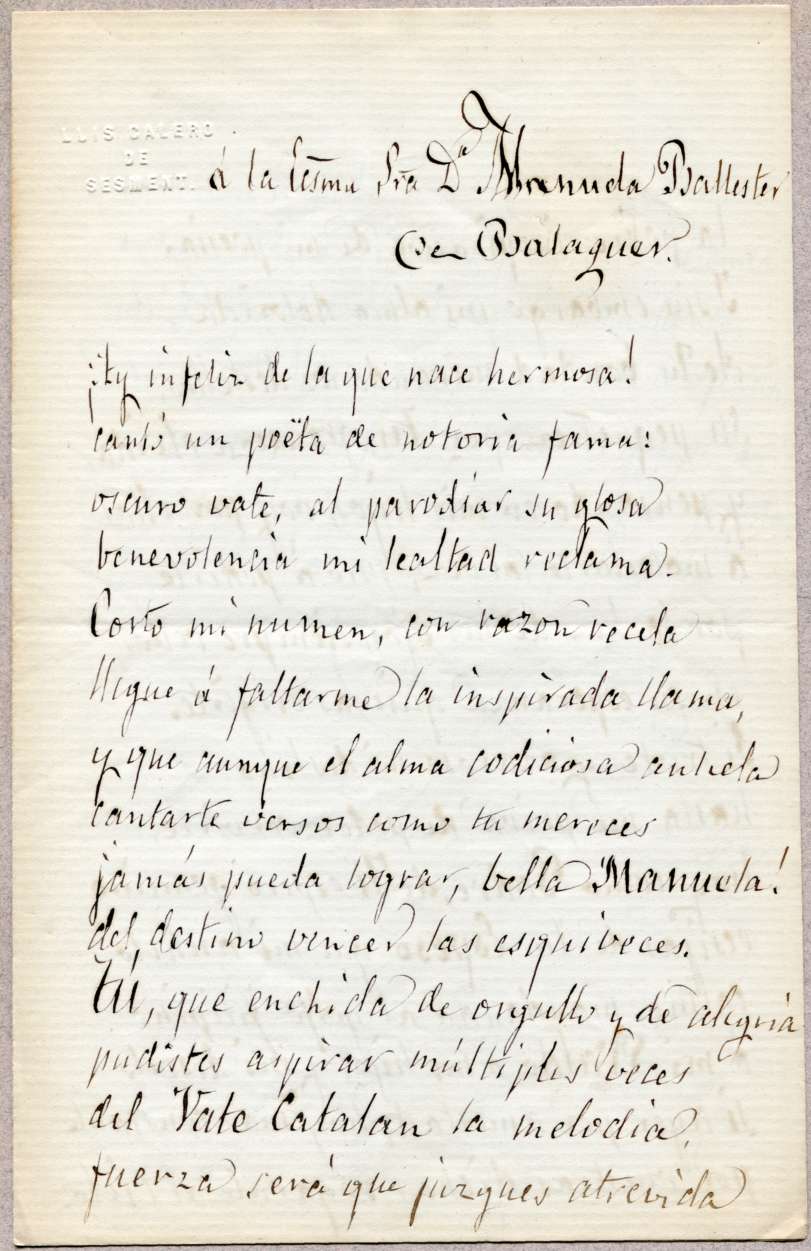 LUIS CALERO
DE
SESMENT.
á la Ecsma Sra Dª Manuela Ballester
de Balaguer.
¡Ay infeliz de la que nace hermosa!
cantó un poëta de notoria fama:
oscuro vate, al parodiar su glosa
benevolencia mi lealtad reclama.
Corto mi numen, con razon recela
llegue á faltarme la inspirada llama,
y que aunque el alma codiciosa anhela
cantarte versos como tu mereces
jamás pueda lograr, bella Manuela!
del destino vencer las esquiveces.
Tú, que enchida de orgullo y de alegria
pudistes aspirar múltiples veces
del Vate Catalan la melodia,
fuerza será que juzgues atrevida